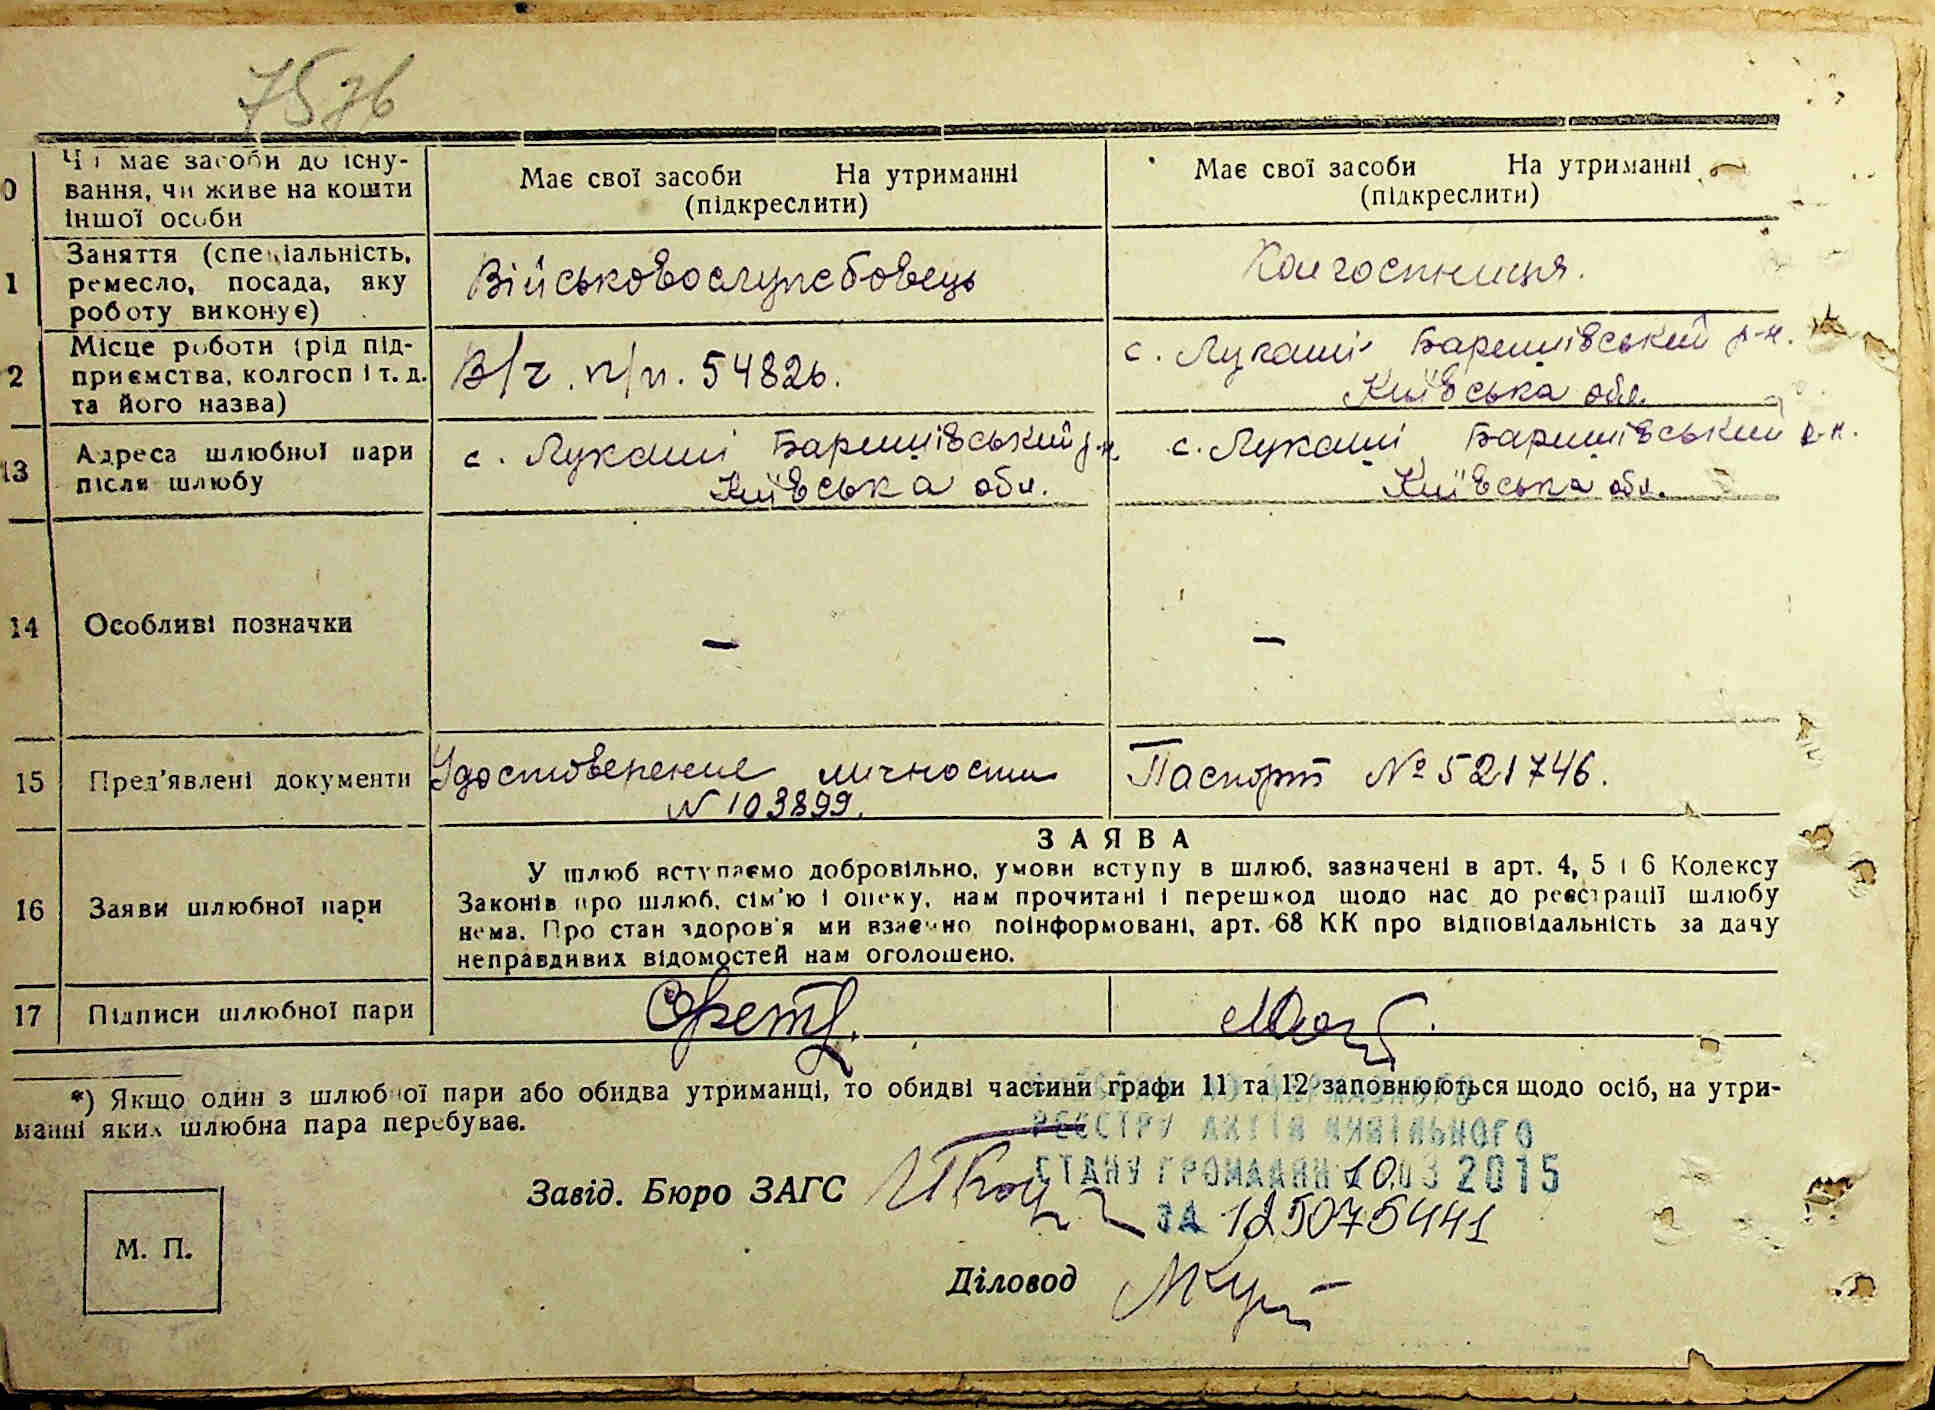 75 зв
Чи має засоби до існу-
вання, чи живе на кошти
іншої особи
Має свої засоби На утриманні
(підкреслити)
Має свої засоби На утриманні
(підкреслити)
1 Заняття (спеціальність,
ремесло, посада, яку
роботу виконує)
Військовослужбовець
Колгоспниця.
2 Місце роботи (рід під-
приємства, колгосп і т. д.
та його назва)
В/ч. п/п. 54826.
с. Лукаші Баришівський р-н.
Київська обл.
13 Адреса шлюбної пари
після шлюбу
с. Лукаші Баришівський р-н.
Київська обл.
с. Лукаші Баришівський р-н.
Київська обл.
14 Особливі позначки
–
–
15 Пред'явлені документи
Удостоверение личности
N 103899.
Паспорт № 521746.
16 Заяви шлюбної пари
ЗАЯВА
У шлюб вступаємо добровільно, умови вступу в шлюб, зазначені в арт. 4, 5 і 6 Кодексу
Законів про шлюб, сім'ю і опіку, нам прочитані і перешкод щодо нас до реєстрації шлюбу
нема. Про стан здоров'я ми взаємно поінформовані, арт. 68 КК про відповідальність за дачу
неправдивих відомостей нам оголошено.
17 Підписи шлюбної пари
*) Якщо один з шлюбної пари або обидва утриманці, то обидві частини графи 11 та 12 заповнюються щодо осіб, на утри-
манні яких шлюбна пара перебуває.
РЕЄСТРУ АКТІВ ЦИВІЛЬНОГО
СТАНУ ГРОМАДЯН 10.03 2015
ЗА 125075441
Завід. Бюро ЗАГС
М. П.
Діловод